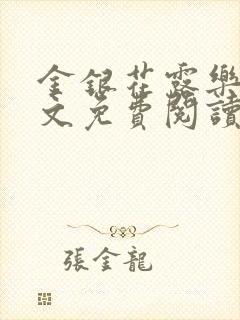 金銀花露樂
文免費閱讀
張金龍